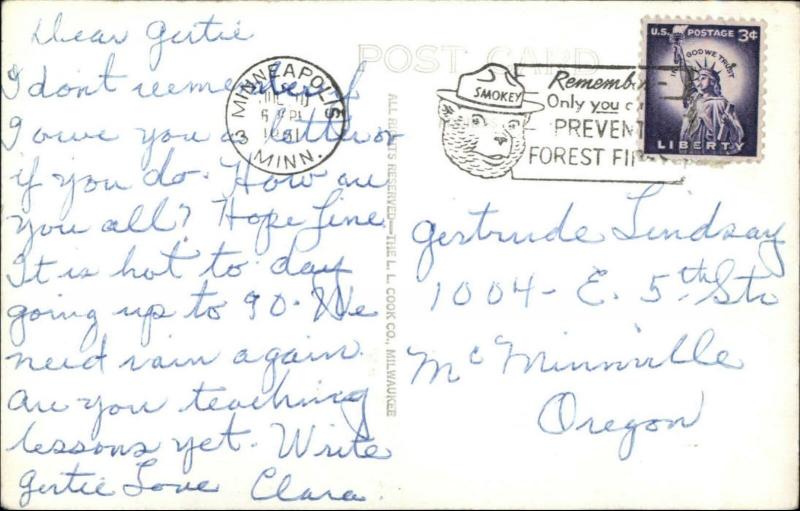 Dear Gertie
I don't remember if
I owe you a letter or
if you do. How are
you all? Hope fine.
It is hot to day
going up to 90. We
need rain again.
are you teaching
lessons yet. Write
Gertie Love Clara.
POST CARD
MINNEAPOLIS
6 PM
3 MINN.
SMOKEY
Remember
Only you
PREVENT
FOREST FI
U.S. POSTAGE 3¢
IN GOD WE TRUST
LIBERTY
ALL RIGHTS RESERVED—THE L. L. COOK CO., MILWAUKEE
Gertrude Lindsay
1004 - E. 5th St.
McMinnville
Oregon